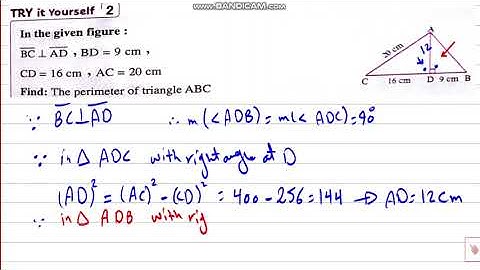 WWW.BANDICAM.COM
TRY it Yourself 2
In the given figure :
BC ⊥ AD , BD = 9 cm ,
CD = 16 cm , AC = 20 cm
Find: The perimeter of triangle ABC
A
20 cm
12
C
16 cm
D
9 cm
B
∵ BC ⊥ AD ∴ m(<ADB) = m(<ADC) = 90°
∵ in Δ ADC with right angle at D
(AD)² = (AC)² - (CD)² = 400 - 256 = 144 → AD = 12 cm
∵ in Δ ADB with rig